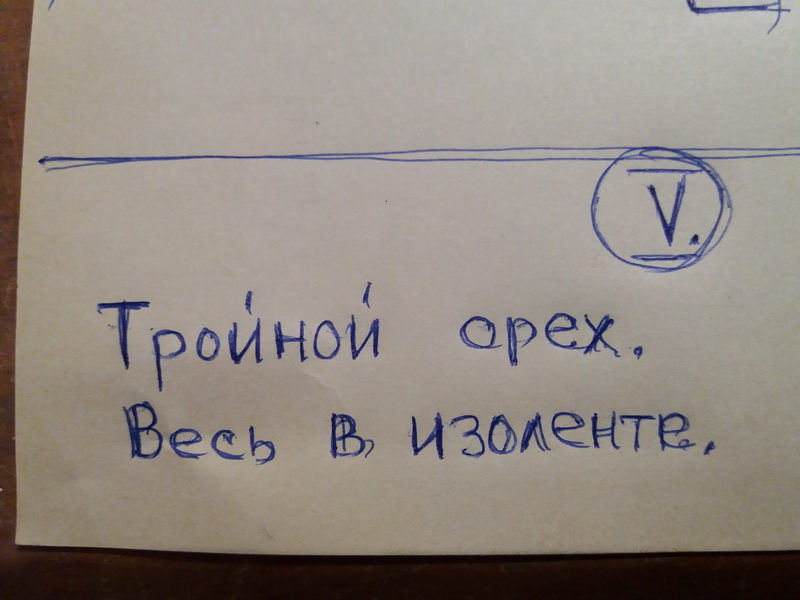 V.
Тройной орех.
Весь в изоленте.